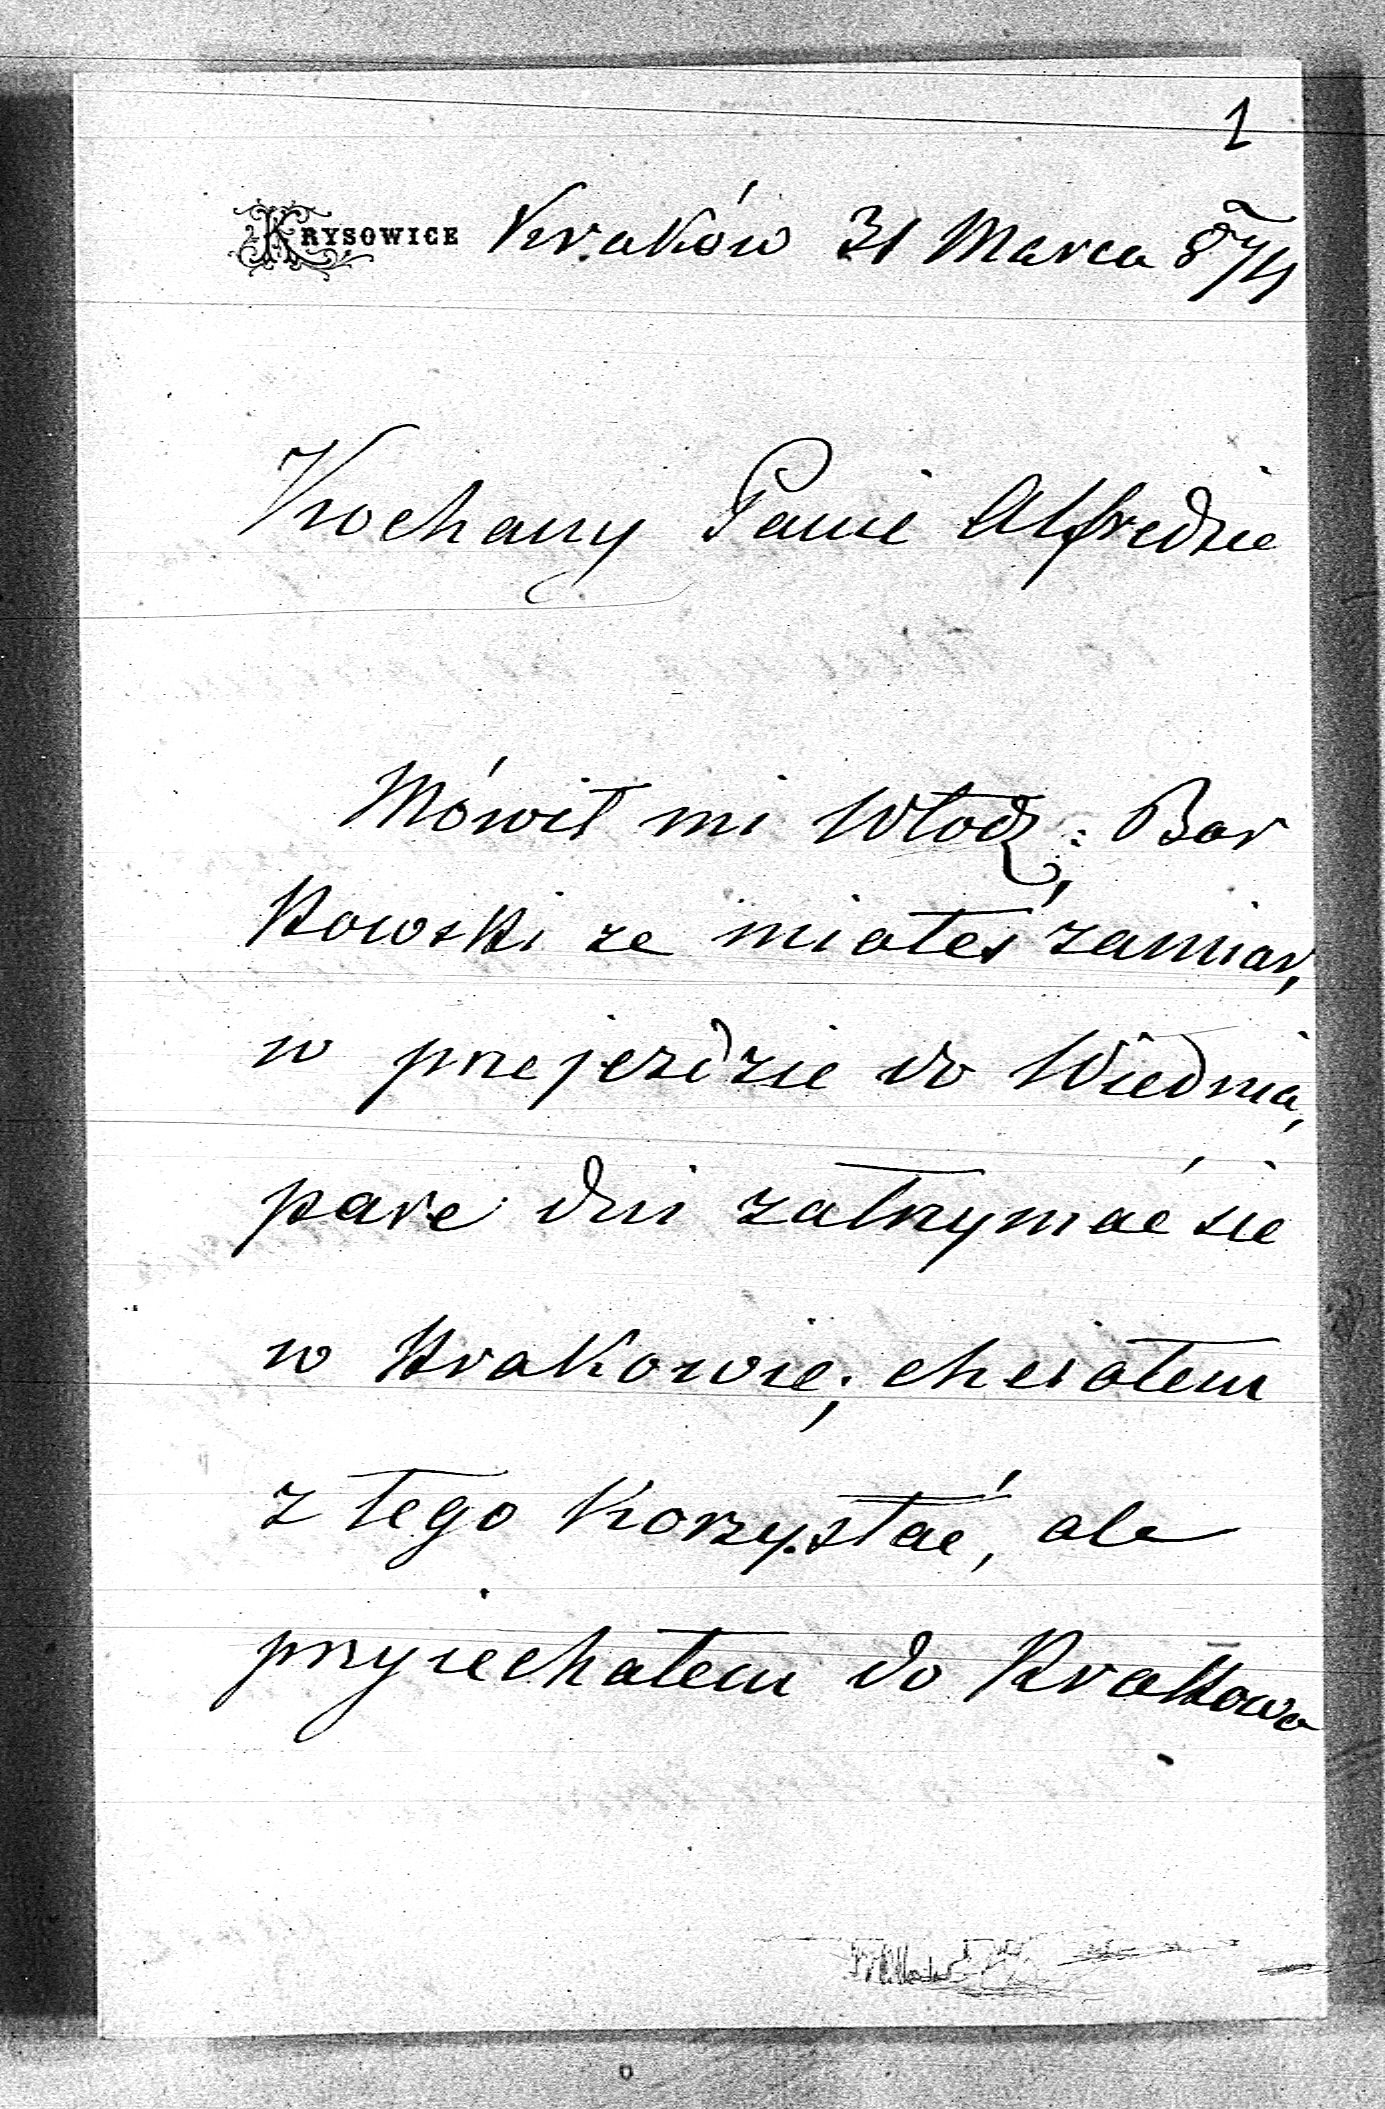 1
KRYSOWICE Kraków 31 Marca 874
Kochany Panie Alfredzie
Mówił mi Włodz: Bor
kowski ze miałeś zamiar,
w przejezdzie do Wiednia,
pare dni zatrzymać sie
w Krakowie; chciałem
z tego korzystać, ale
przyiechałem do Krakowa